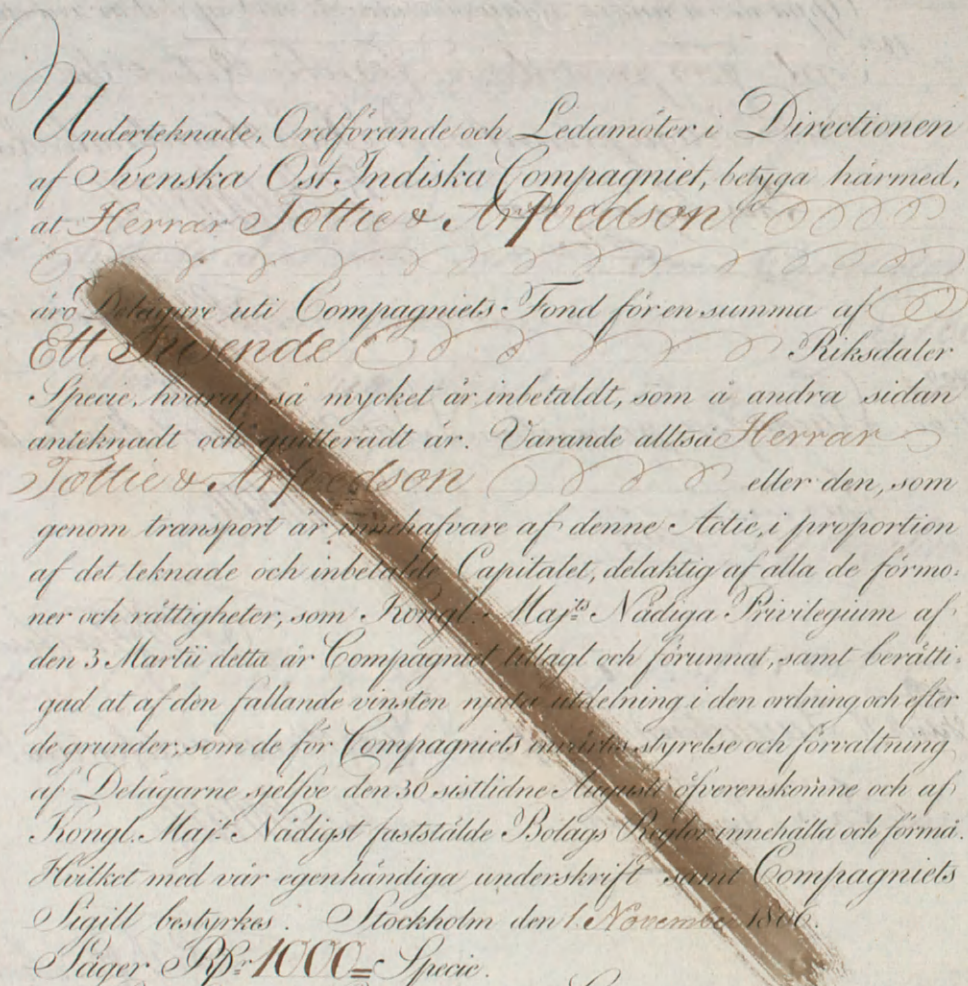 Underteknade, Ordförande och Ledamöter i Directionen
af Svenska Ost Indiska Compagniet, betyga härmed,
at Herrar Tottie & Arfvedson
äro Delägare uti Compagniets Fond för en summa af
Ett Tusende Riksdaler
Specie, hvaraf så mycket är inbetaldt, som å andra sidan
anteknadt och quitteradt är. Varande alltså Herrar
Tottie & Arfvedson eller den, som
genom transport är innehafvare af denne Actie, i proportion
af det teknade och inbetalde Capitalet, delaktig af alla de förmo-
ner och rättigheter, som Kongl. Maj:ts Nådiga Privilegium af
den 3 Martii detta år Compagniet tillagt och förunnat, samt berätti-
gad at af den fallande vinsten njuta utdelning i den ordning och efter
de grunder, som de för Compagniets inwärtes styrelse och förvaltning
af Delägarne sjelfve den 30 sistlidne Augusti öfverenskomne och af
Kongl. Maj:t Nådigst fastställde Bolags Reglor innehålla och förmå.
Hvilket med vår egenhändiga underskrift samt Compagniets
Sigill bestyrkes. Stockholm den 1 November 1806.
Säger Rdr 1000 = Specie.